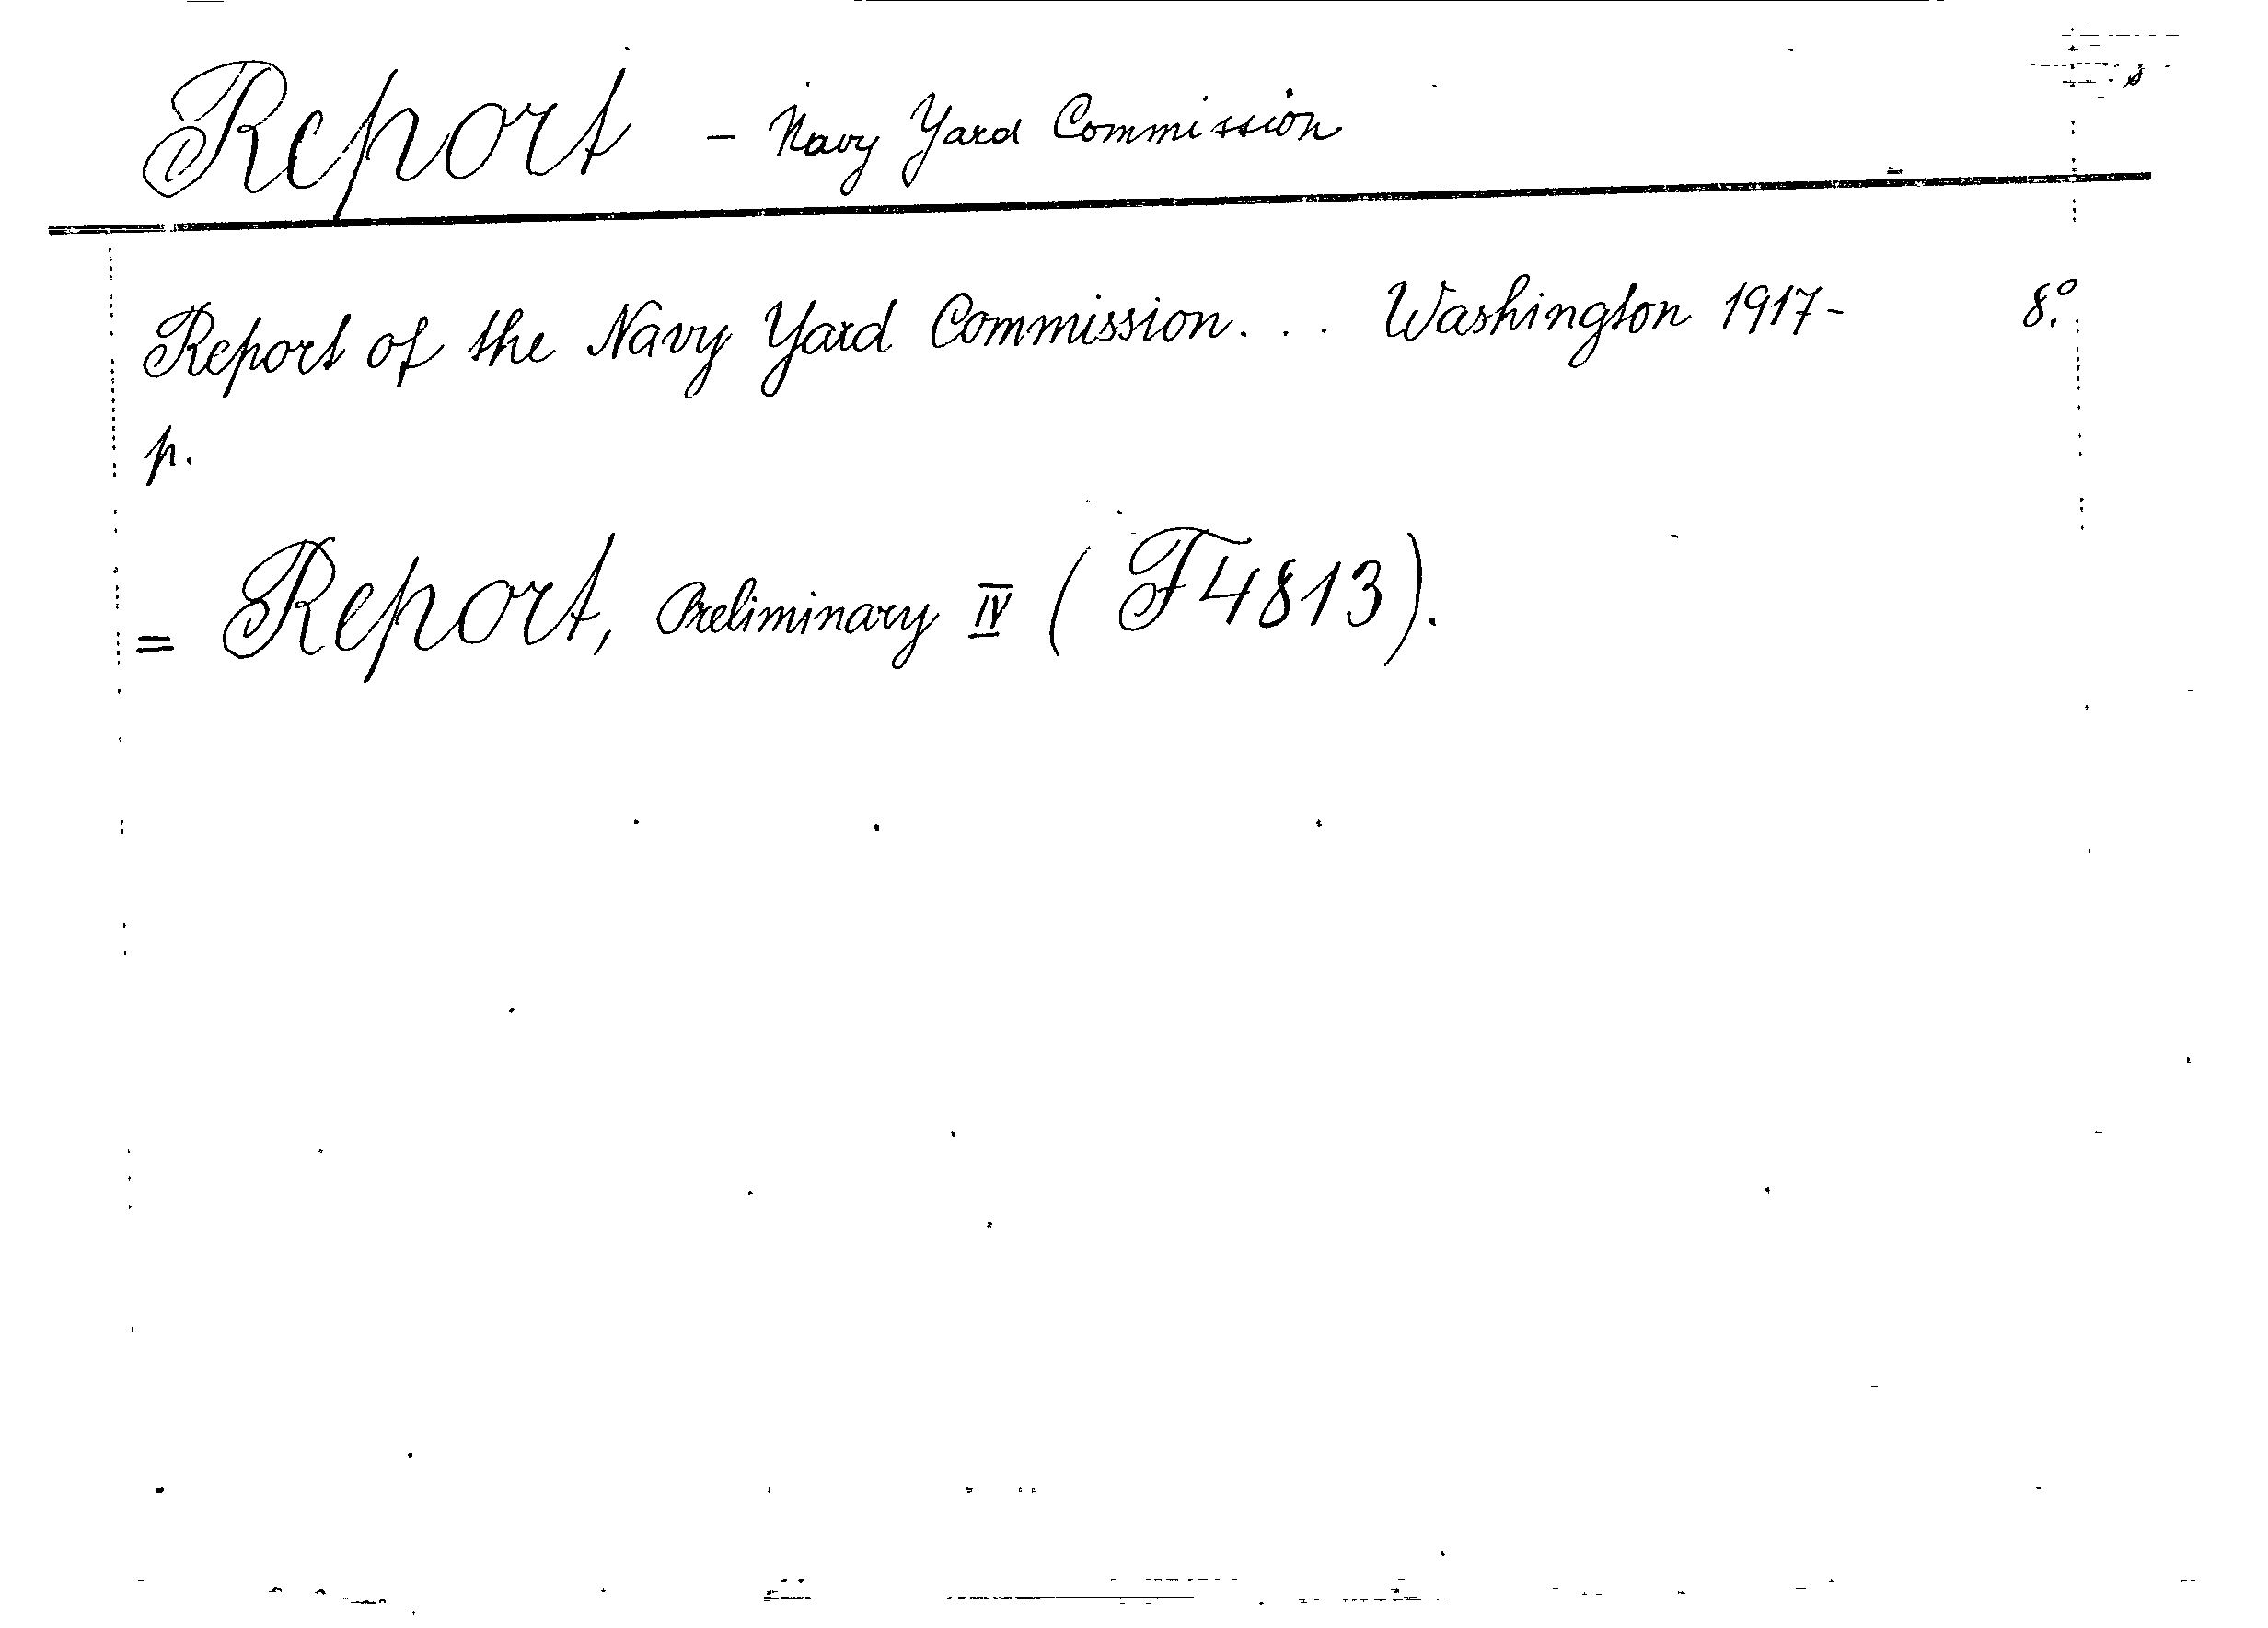 Report - Navy Yard Commission
Report of the Navy Yard Commission. . . Washington 1917- 8º.
p.
= Report, Preliminary IV (F4813).